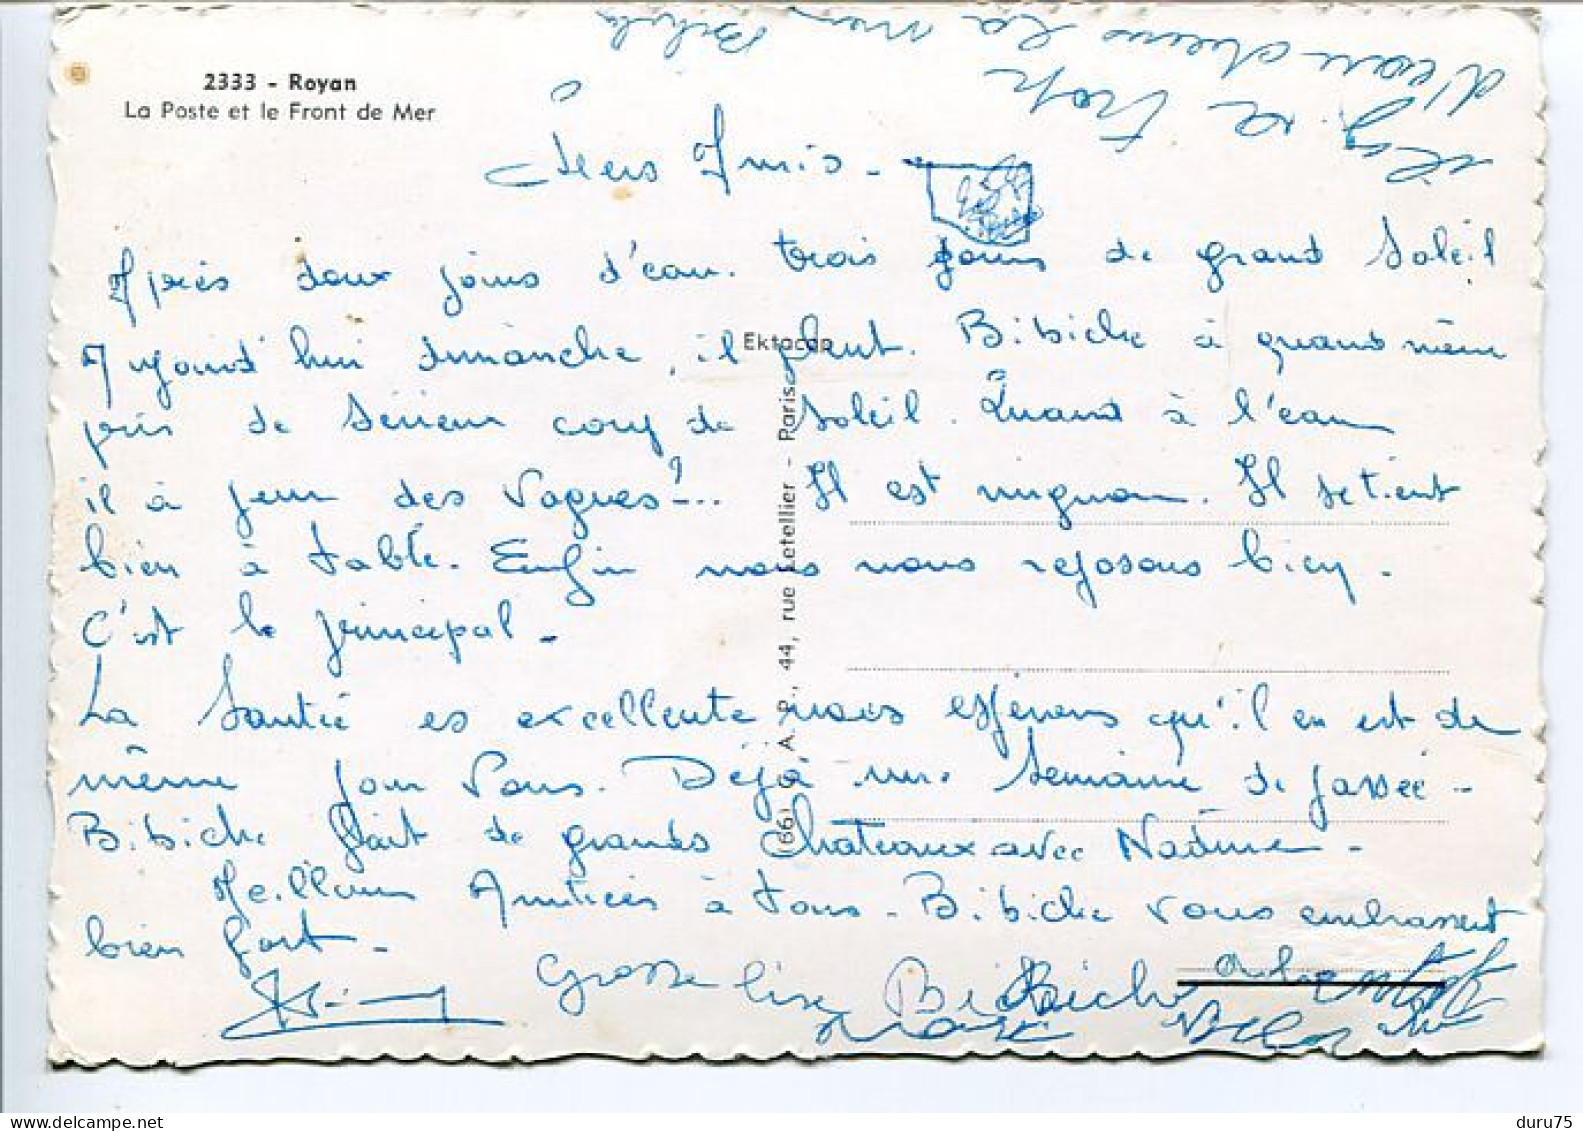 2333 - Royan
La Poste et le Front de Mer
Il y a trop
d'eau dans la mer
Chers Amis -
Après deux jours d'eau. trois jours de grand Soleil
Aujourd'hui dimanche, il pleut. Bibiche à quand même
pris de sérieux coup de Soleil. Quand à l'eau
il à peur des Vagues!... Il est mignon. Il se tient
bien à table. Enfin nous nous reposons bien.
C'est le principal -
La Santée es excellente nous espérons qu'il en est de
même pour Vous. Déjà une Semaine de passée -
Bibiche fait de grands Chateaux avec Nadine -
Meilleurs Amitiées à tous - Bibiche vous embrassent
bien fort -
Grosse bise Bibiche
Ektacap
(66) C. A. P., 44, rue Letellier - Paris
duru75